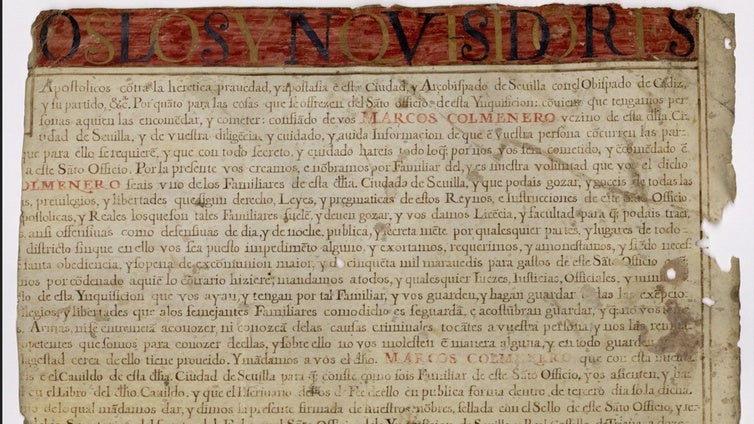 OS LOS YNQVISIDORES
Apostolicos cõtra la heretica prauedad, y apostasia ẽ esta Ciudad, y Arçobispado de Seuilla con el Obispado de Cadiz,
y su partido, &c. Por quãto para las cosas que se ofrezen del Sãto officio de esta Ynquisicion: cõuiene que tengamos per
sonas aquien las encomẽdar, y cometer: confiãdo de vos MARCOS COLMENERO vezino de esta dha. Ciu
dad de Seuilla, y de vuestra diligẽcia, y cuidado, y auida Informacion de que ẽ vuestra persona cõcurren las par
que para ello se requierẽ, y que con todo secreto, y cuidado hareis todo loq̃ por nos vos sera cometido, y ẽcomẽdado ẽ
a este Sãto Officio. Por la presente vos creamos, e nõbramos por Familiar del, y es nuestra voluntad que vos el dicho
OLMENERO seais vno de los Familiares de esta dha. Ciudad de Seuilla, y que podais gozar, y goceis de todas las
s, preuilegios, y libertades que segun derecho, Leyes, y pregmaticas de estos Reynos, e Instrucciones de este Sãto Officio
postolicas, y Reales los que son tales Familiares suelẽ, y deuen gozar, y vos damos Licẽcia, y facultad para q̃ podais traer
ansi offensiuas como defensiuas de dia, y de noche, publica, y secreta mẽte por qualesquier partes, y lugares de todo
districto sin que en ello vos sea puesto impedimẽto alguno, y exortamos, requerimos, y amonestamos, y siẽdo necess
santa obediencia, y so pena de excomunion maior, y de cinquẽta mil marauedis para gastos de este Sãto Officio
nos por cõdenado aquiẽ lo cõtrario hiziere: mandamos a todos, y qualesquier Iuezes, Iusticias, Officiales, y minis
to de esta Ynquisicion que vos ayan, y tengan por tal Familiar, y vos guarden, y hagan guardar las exẽpcio
ilegios, y libertades que alos semejantes Familiares como dicho es se guardã, e acostũbran guardar, y q̃ no vos
s. Armas, ni se entremetã a conozer, ni conozcã de las causas criminales tocãtes a vuestra persona, y nos las remitã
petentes que somos para conozer de ellas, y sobre ello no vos molesten ẽ manera alguna, y en todo guarden
agestad cerca de ello tiene proueido. Y mãdamos a vos el dho. MARCOS COLMENERO que con esta nuestra
is ẽ el Cauildo de esta dha. Ciudad de Seuilla para q̃ conste como sois Familiar de este Sãto Officio, y os asienten, y
en el Libro del dho Cauildo, y que el Escriuano de los de Fe de ello en publica forma dentro de tercero dia so la dicha
de lo qual mãdamos dar, y dimos la presente firmada de nuestros nõbres, sellada con el Sello de este Sãto Officio, y